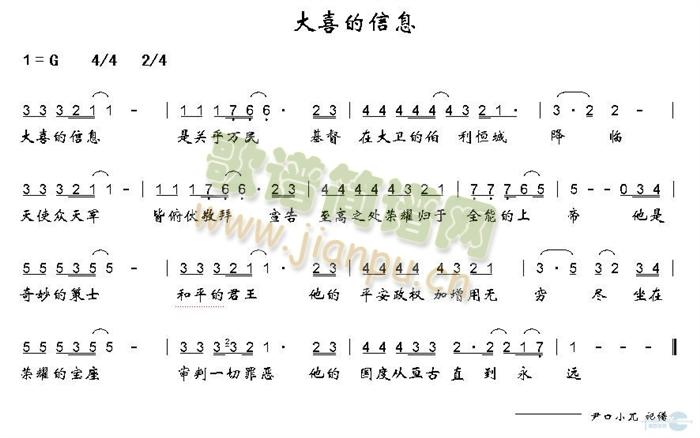 大喜的信息
1=G 4/4 2/4
3 3 3 2 1 1 - | 1 1 1 7 6 6 · 2 3 | 4 4 4 4 4 4 3 2 1 · | 3 · 2 2 - |
大喜的信息 是关乎万民 基督 在大卫的伯利恒城 降 临
3 3 3 2 1 1 - | 1 1 1 7 6 6 · 2 3 | 4 4 4 4 4 3 2 1 | 7 7 7 6 5 | 5 - - 0 3 4 |
天使众天军 皆俯伏敬拜 宣告 至高之处荣耀归于 全能的上 帝 他是
5 5 5 3 5 5 - | 3 3 3 2 1 1 · 2 3 | 4 4 4 4 4 3 2 1 | 3 · 5 3 2 3 4 |
奇妙的策士 和平的君王 他的 平安政权加增用无 穷 尽 坐在
5 5 5 3 5 5 - | 3 3 3 2 3 2 1 · 2 3 | 4 4 4 3 3 2 · 2 2 1 7 | 1 - - - ‖
荣耀的宝座 审判一切罪恶 他的 国度从亘古直到永 远
尹口小兀 记谱
歌谱简谱网
www.jianpu.cn